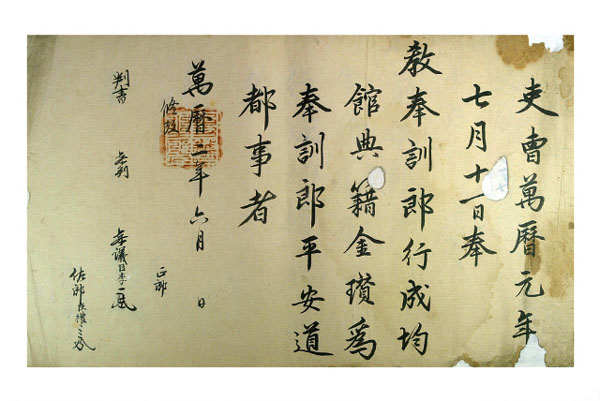 吏曹萬曆元年
七月十一日奉
教奉訓郎行成均
館典籍金瓚爲
奉訓郎平安道
都事者
萬曆二年六月 日
修政
判書 參判 參議臣李 正郎
佐郎臣權